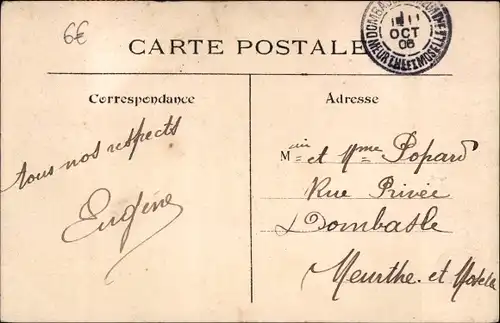 6€
CARTE POSTALE
OCT
MEURTHE ET MOSELLE
Correspondance
Adresse
tous nos respects
Eugène
et Mme Popard
Rue Privée
Dombasle
Meurthe et Moselle